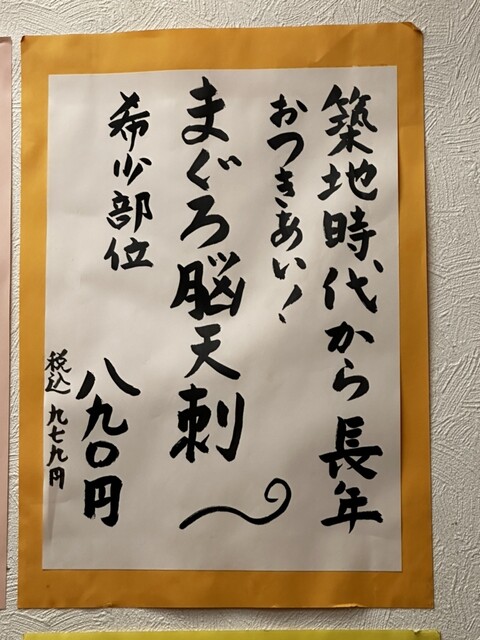 築地時代から長年
おつきあい！
まぐろ脳天刺
希少部位
八九〇円
税込九七九円